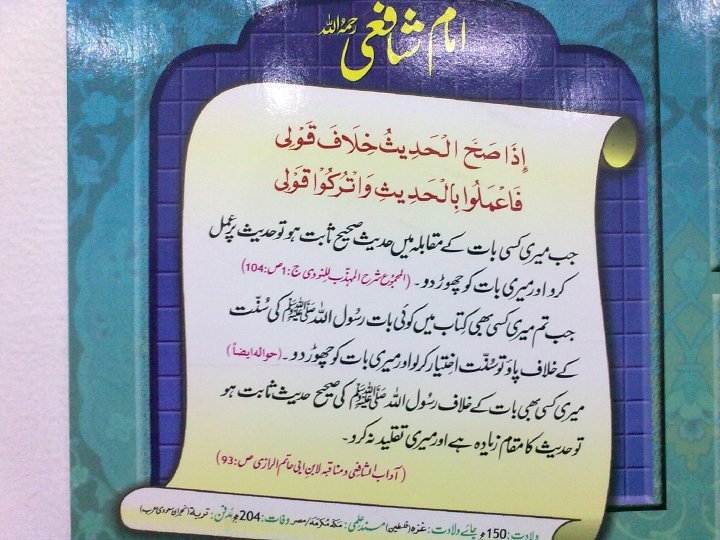 امام شافعی رحمہ اللہ
إِذَا صَحَّ الْحَدِيثُ خِلَافَ قَوْلِى
فَاعْمَلُوا بِالْحَدِيثِ وَاتْرُكُوْا قَوْلِى
جب میری کسی بات کے مقابلہ میں حدیث صحیح ثابت ہو تو حدیث پر عمل
کرو اور میری بات کو چھوڑ دو۔ (المجموع شرح المہذب للنووی ج:1ص:104)
جب تم میری کسی بھی کتاب میں کوئی بات رسُول اللہ ﷺ کی سُنّت
کے خلاف پاؤ تو سُنّت اختیار کر لو اور میری بات کو چھوڑ دو۔ (حوالہ ایضاً)
میری کسی بھی بات کے خلاف رسُول اللہ ﷺ کی صحیح حدیث ثابت ہو
تو حدیث کا مقام زیادہ ہے اور میری تقلید نہ کرو۔
(آداب الشافعی ومناقبہ لابن ابی حاتم الرازی ص:93)
ولادت: 150ھ جائے ولادت: غزہ (فلسطین) مسند علمی: مکہ مکرمہ/مصر وفات: 204ھ مدفن: